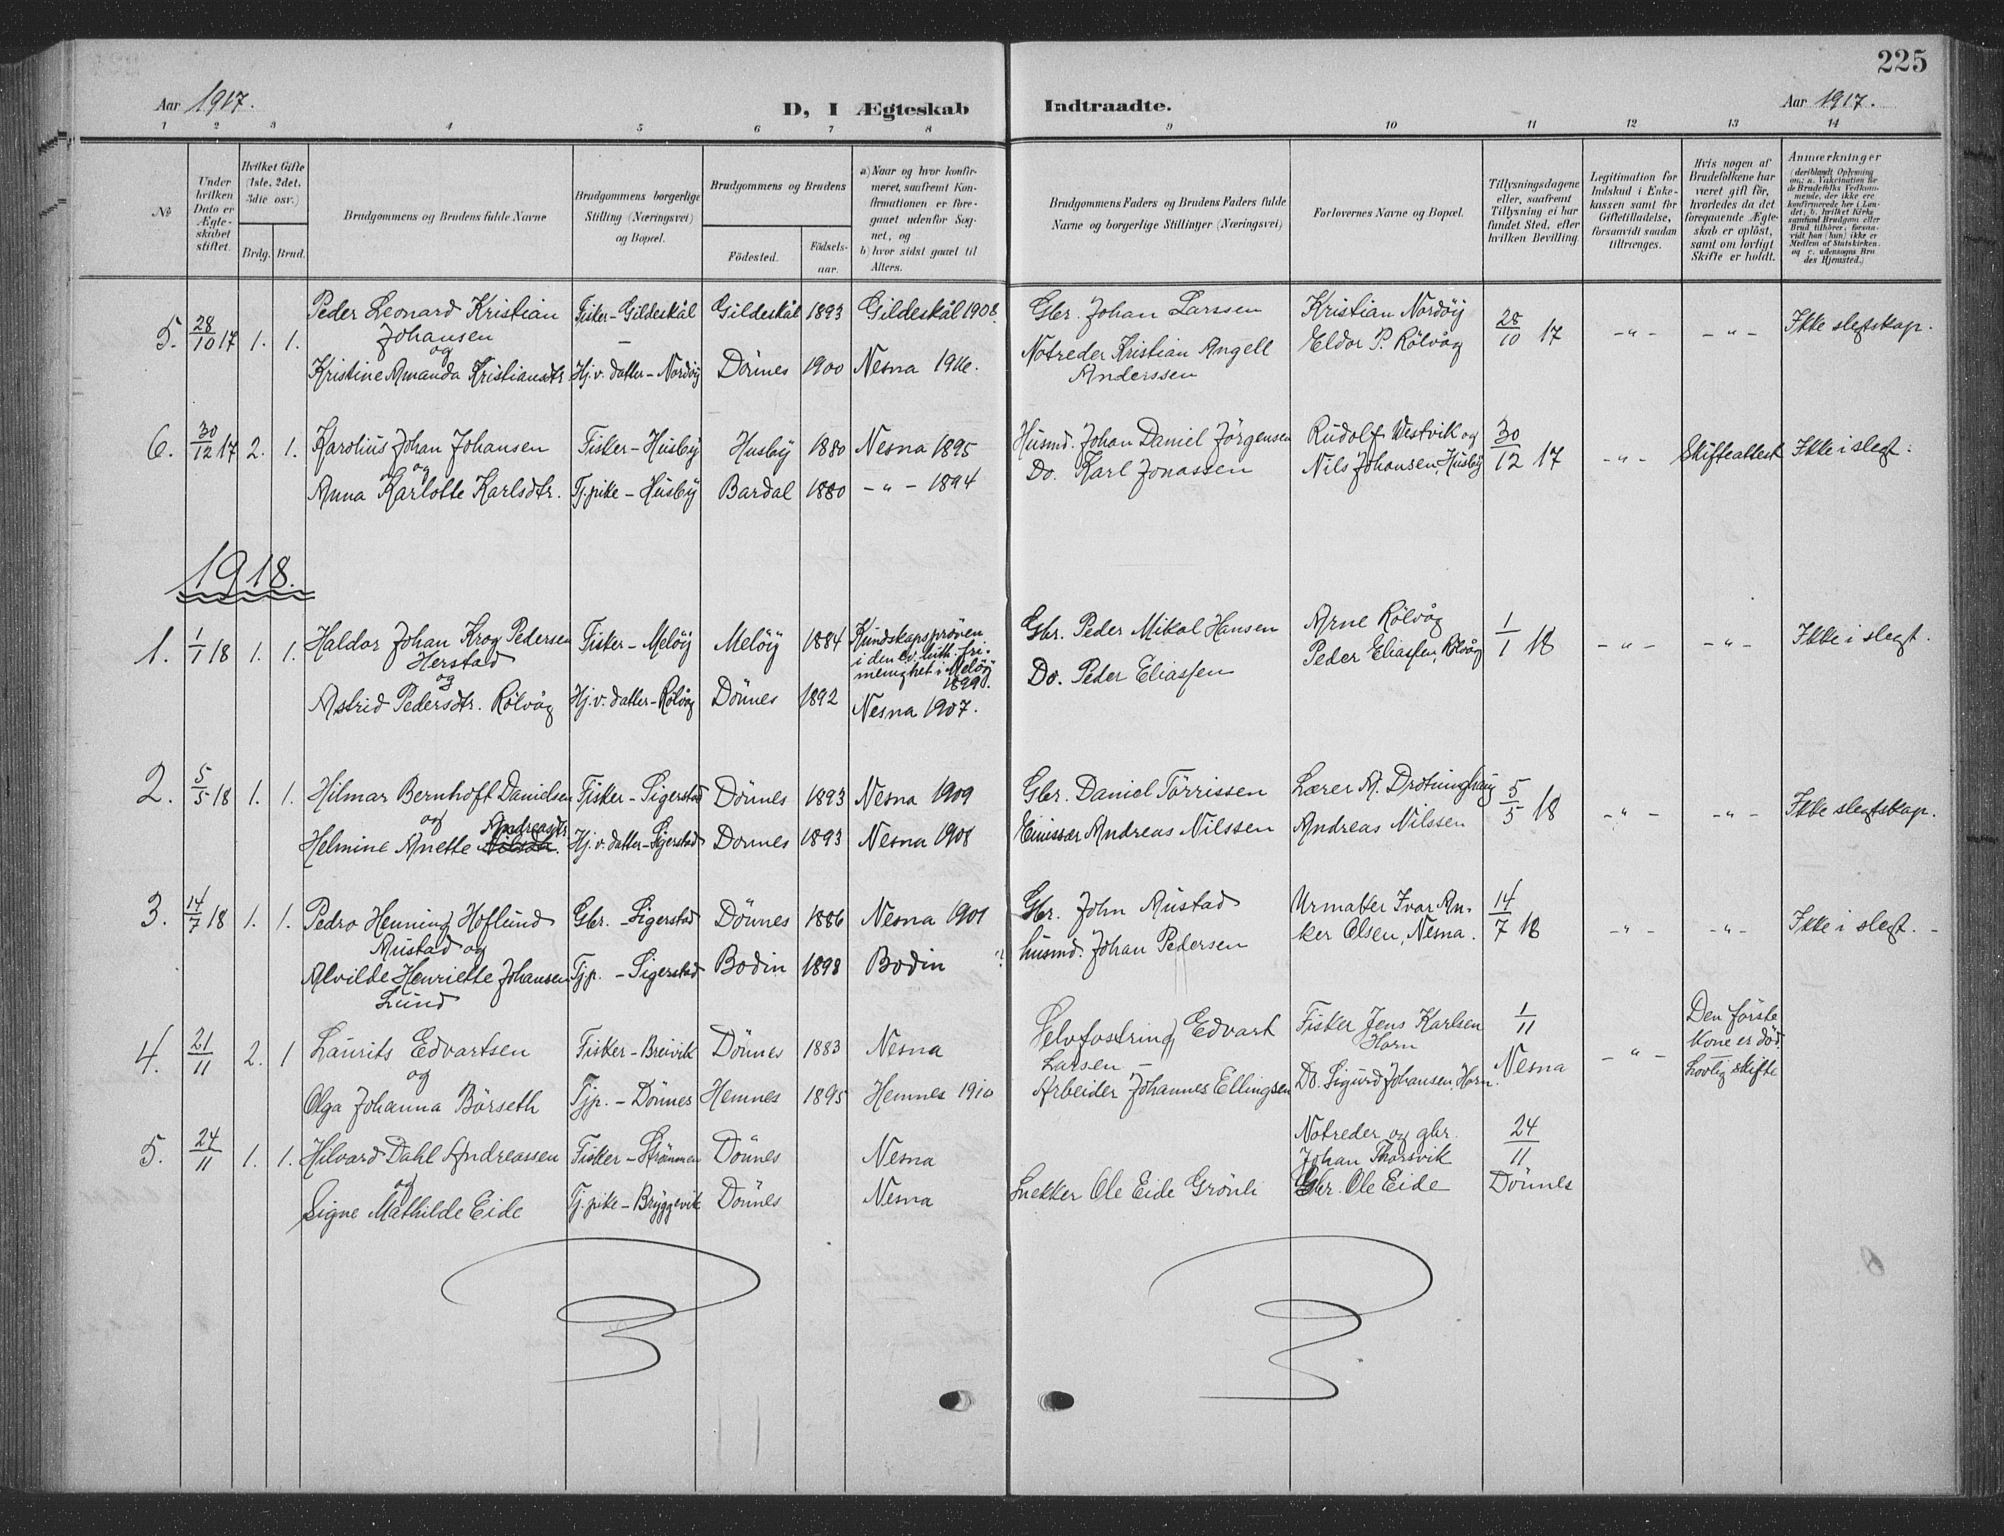 225
Aar 1917.
D, I Ægteskab
Indtraadte.
Aar 1917.
1 2 3 4 5 6 7 8 9 10 11 12 13 14
No
Under hvilken Dato er Ægteskabet stiftet.
Hvilket Gifte (1ste, 2det, 3die osv.)
Brdg. Brud.
Brudgommens og Brudens fulde Navne
Brudgommens borgerlige Stilling (Næringsvei) og Bopæl.
Brudgommens og Brudens
Fødested.
Fødselsaar.
a) Naar og hvor konfirmeret, saafremt Konfirmationen er foregaaet udenfor Sognet, og
b) hvor sidst gaaet til Alters.
Brudgommens Faders og Brudens Faders fulde Navne og borgerlige Stillinger (Næringsvei)
Forlovernes Navne og Bopæl.
Tillysningsdagene eller, saafremt Tillysning ei har fundet Sted, efter hvilken Bevilling.
Legitimation for Indskud i Enkekassen samt for Giftetilladelse, forsaavidt saadan tiltrænges.
Hvis nogen af Brudefolkene har været gift før, hvorledes da det foregaaende Ægteskab er opløst, samt om lovligt Skifte er holdt.
Anmærkninger
5. 28/10 17 1. 1. Peder Leonard Kristian Johansen Fisker - Gildeskål Gildeskål 1893 Gildeskål 1908. Gbr. Johan Larssen Kristian Nordöy 28/10 17 -"- -"- Ikke slegtskap.
og
Kristine Amanda Kristiansdtr Hj.v. datter - Nordöy Dönnes 1900 Nesna 1916. Notreder Kristian Angell Anderssen Eldor P. Rölvåg
6. 30/12 17 2. 1. Karolius Johan Johansen Fisker - Husby Husby 1880 Nesna 1895 Husmd. Johan Daniel Jörgensen Rudolf Westvik og 30/12 17 -"- Skifteattest Ikke i slegt.
og
Anna Karlotte Karlsdtr. Tj.pike - Husby Bardal 1880 -"- 1894 Do. Karl Jonassen Nils Johansen, Husby
1918.
1. 1/1 18 1. 1. Haldor Johan Krog Pedersen Herstad Fisker - Melöy Melöy 1884 Kundskapsprøven i den ev. luth. frimenighet i Melöy 1899. Gbr. Peder Mikal Hansen Arne Rölvåg 1/1 18 -"- -"- Ikke i slegt.
og
Astrid Pedersdtr. Rölvåg Hj.v. datter - Rölvåg Dönnes 1892 Nesna 1907. Do. Peder Eliassen Peder Eliassen, Rölvåg
2. 5/5 18 1. 1. Hilmar Bernhoft Danielsen Fisker - Sigerstad Dönnes 1893 Nesna 1909 Gbr. Daniel Törrissen Lærer A. Drotninghaug 5/5 18 -"- -"- Ikke slegtskap.
og Andreasdtr.
Helmine Anette Hj.v. datter - Sigerstad Dönnes 1893 Nesna 1908 Emissær Andreas Nilssen Andreas Nilssen
3. 14/7 18 1. 1. Pedro Henning Hoflund Austad og Gbr. - Sigerstad Dönnes 1886 Nesna 1901 Gbr. John Austad Urmaker Ivar Anker Olsen, Nesna. 14/7 18 -"- -"- Ikke i slegt. -
Alvilde Henriette Johansen Lund Tjp. - Sigerstad Bodin 1898 Bodin ? husmd. Johan Pedersen
4. 21/11 2. 1 Laurits Edvartsen Fisker - Breivik Dönnes 1883 Nesna Selvfostring Edvart Larsen - Fisker Jens Karlsen Horn 1/11 Nesna -"- Den første kone er död. Lovlig skifte
og
Olga Johanna Börseth Tjp. - Dönnes Hemnes 1895 Hemnes 1910 Arbeider Johannes Ellingsen Do. Sigurd Johansen, Horn.
5. 24/11 1. 1. Hilvard Dahl Andreassen Fisker - Strömmen Dönnes Nesna Notreder og gbr. Johan Thorsvik 24/11 Dönnes
og
Signe Mathilde Eide Tj.pike - Bryggevik Dönnes Nesna Snekker Ole Eide Grönli Gbr. Ole Eide